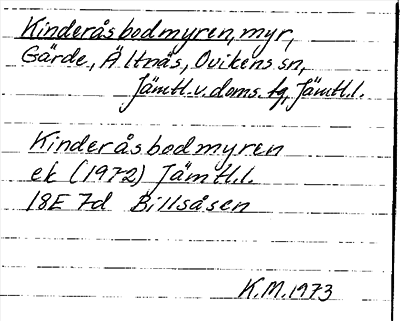 Kinderåsbodmyren, myr,
Gärde, Ältnäs, Ovikens sn,
Jämtl.v.doms.tg, Jämtl.l.
Kinderåsbodmyren
ek (1972) Jämtl.l.
18E 7d Billsåsen
K.M.1973